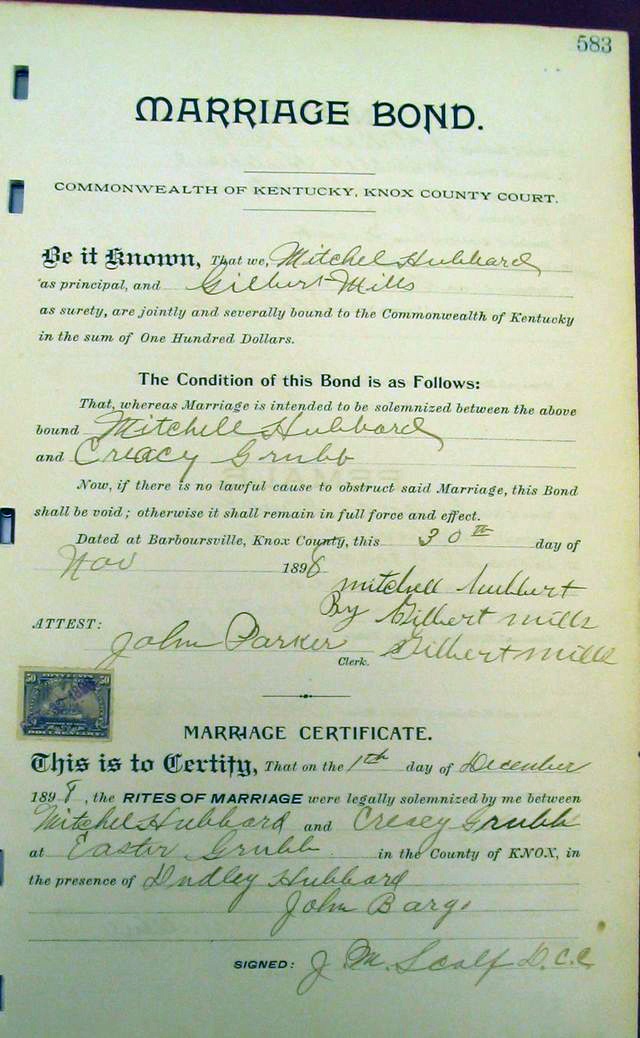 583
MARRIAGE BOND.
COMMONWEALTH OF KENTUCKY, KNOX COUNTY COURT.
Be it Known, That we, Mitchel Hubbard
as principal, and Gilbert Mills
as surety, are jointly and severally bound to the Commonwealth of Kentucky
in the sum of One Hundred Dollars.
The Condition of this Bond is as Follows:
That, whereas Marriage is intended to be solemnized between the above
bound Mitchell Hubbard
and Creacy Grubb
Now, if there is no lawful cause to obstruct said Marriage, this Bond
shall be void; otherwise it shall remain in full force and effect.
Dated at Barboursville, Knox County, this 30th day of
Nov 1898
mitchell hubbert
By Gilbert mills
ATTEST:
John Parker Clerk. Gilbert mills
50 50
MARRIAGE CERTIFICATE.
This is to Certify, That on the 1th day of December
1898, the RITES OF MARRIAGE were legally solemnized by me between
Mitchel Hubbard and Creacy Grubb
at Easter Grubb in the County of KNOX, in
the presence of Dudley Hubbard
John
SIGNED: J M. Scalf D.C.C.